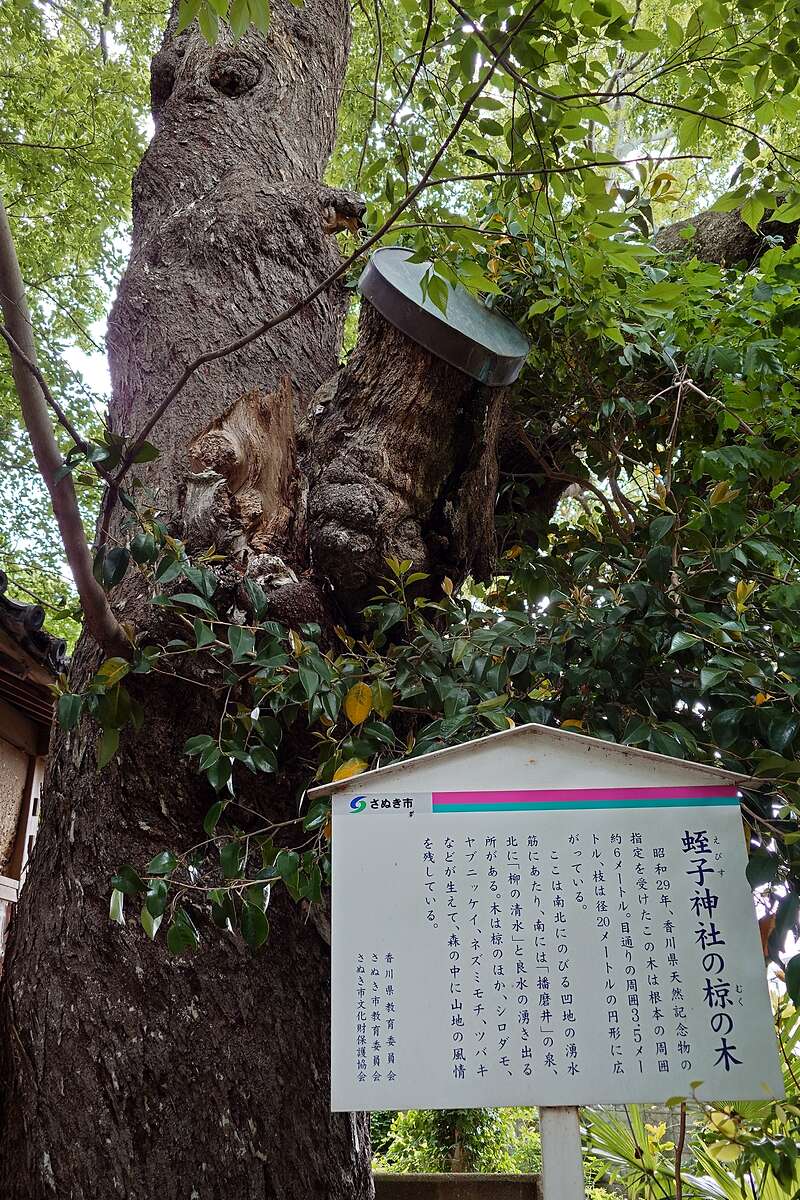 さぬき市
えびす
むく
蛭子神社の椋の木
昭和29年、香川県天然記念物の
指定を受けたこの木は根本の周囲
約6メートル。目通りの周囲3.5メー
トル、枝は径20メートルの円形に広
がっている。
ここは南北にのびる凹地の湧水
筋にあたり、南には「播磨井」の泉、
北に「柳の清水」と良水の湧き出る
所がある。木は椋のほか、シロダモ、
ヤブニッケイ、ネズミモチ、ツバキ
などが生えて、森の中に山地の風情
を残している。
香川県教育委員会
さぬき市教育委員会
さぬき市文化財保護協会